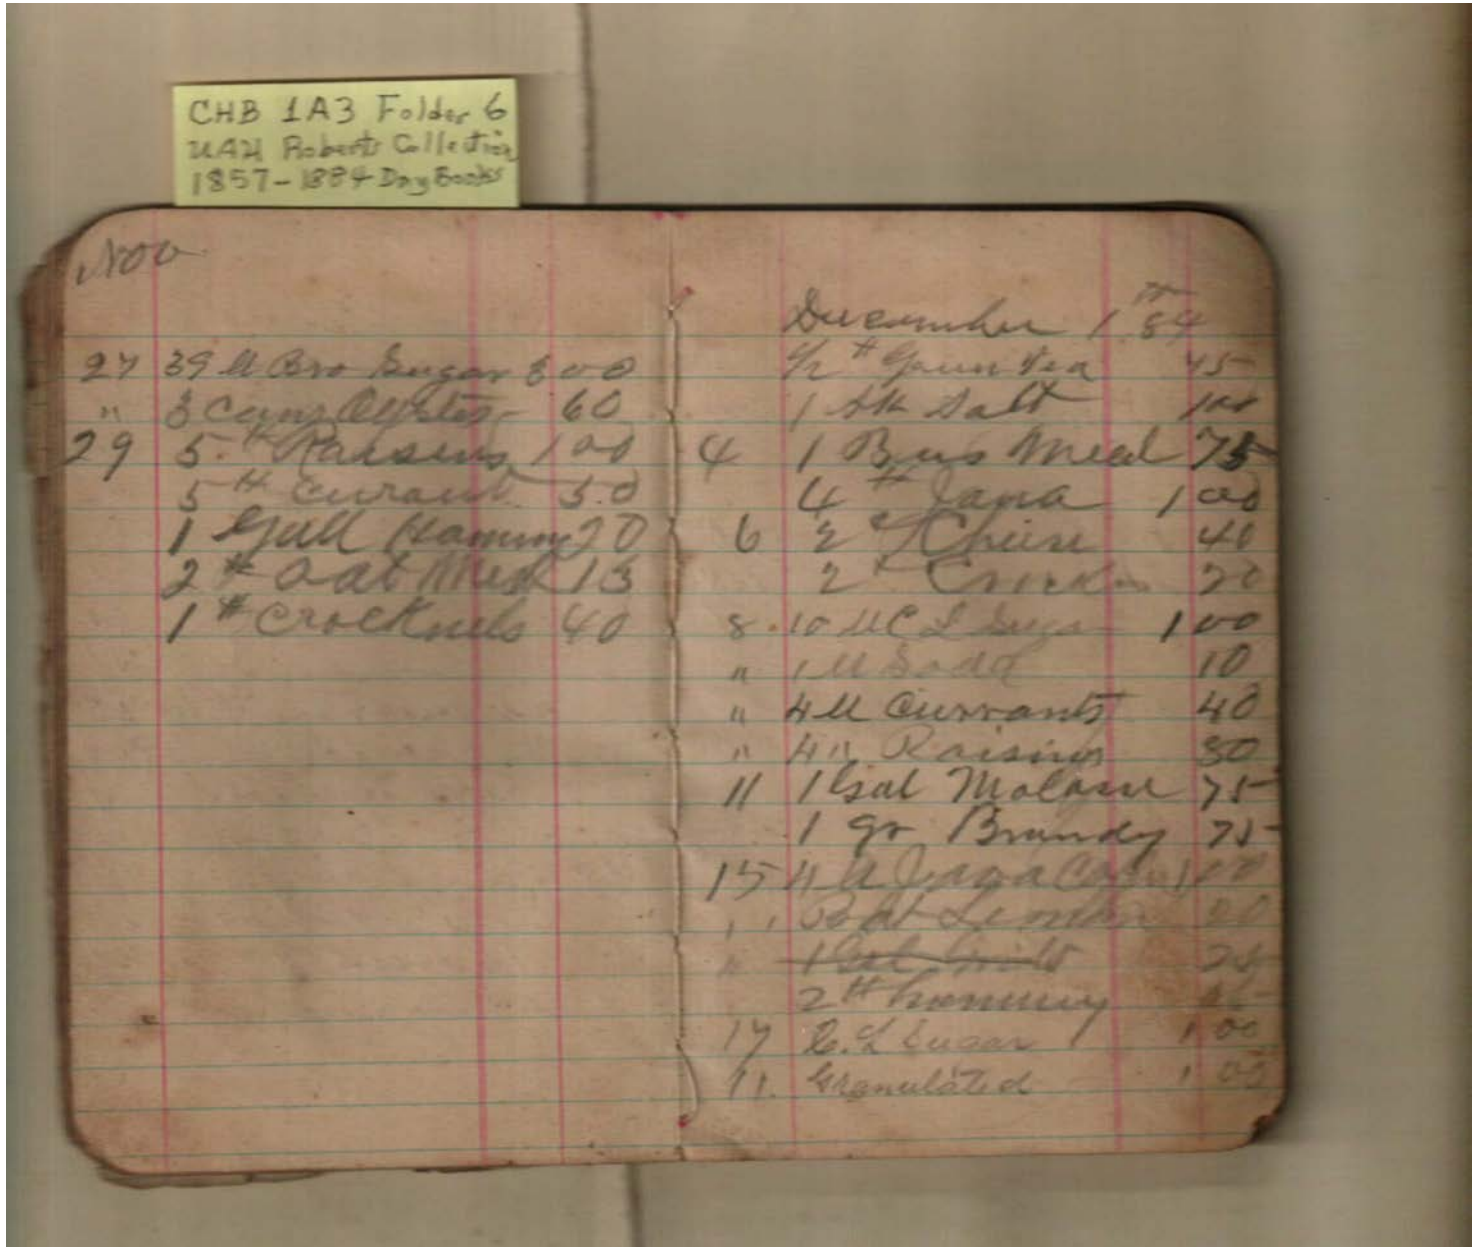 CHB 1A3 Folder 6
UAH Roberts Collection
1857-1884 Day Books
Nov
27 39 ll Bro Sugar 3 00
" 3 Cans Oysters 60
29 5 # Raisens 1 00
5 # Curant 50
1 Gall Hominy 20
2 # Oat Meal 15
1 # Crocknels 40
December 1 84
1/2 # Green Tea 45
1 Sk Salt 1 00
4 1 Bus Meal 75
4 # Java 1 00
6 2 # Cheese 40
2 # 20
8 10 ll C L Sugar 1 00
" 1 ll Soda 10
" 4 ll Currants 40
" 4 " Raisins 80
11 1 Gal Molasse 75
1 qr Brandy 75
15 4 ll Java 1 00
" Lemon
" 1 Gal 25
2 # hominy
17 C. L Sugar 1 00
11. Granulated 1 00